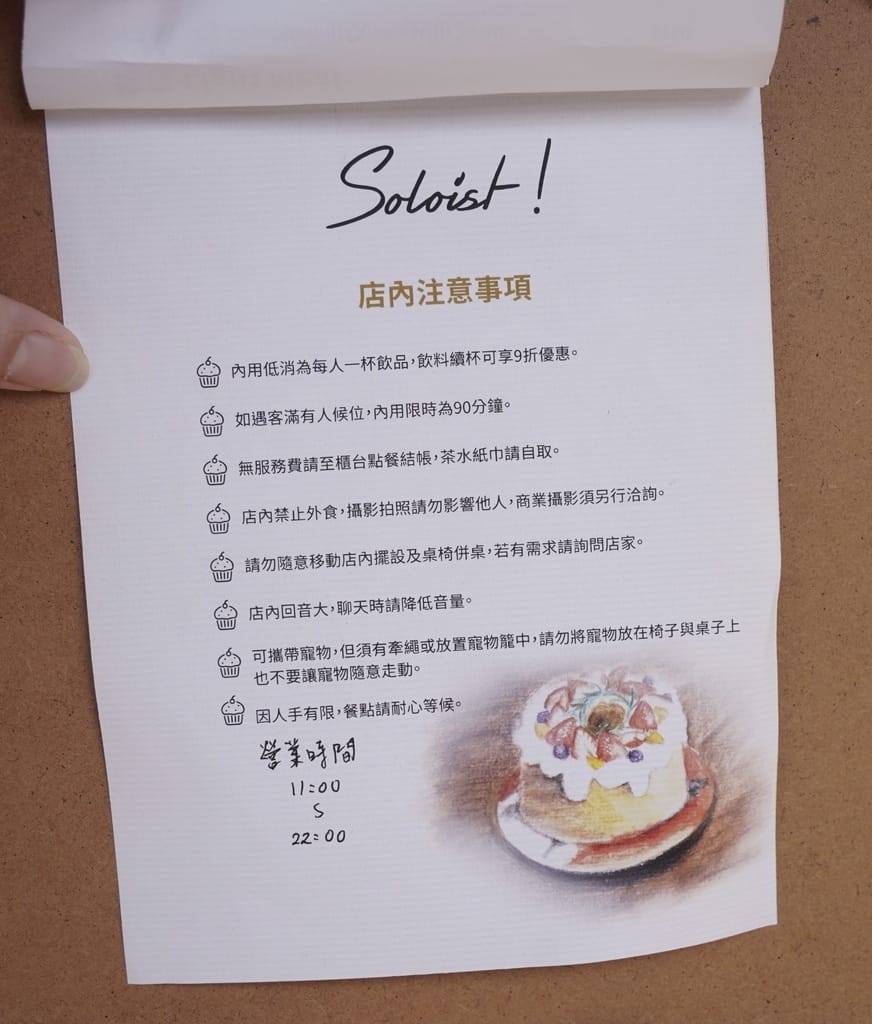 Soloist!
店內注意事項
內用低消為每人一杯飲品,飲料續杯可享9折優惠。
如遇客滿有人候位,內用限時為90分鐘。
無服務費請至櫃台點餐結帳,茶水紙巾請自取。
店內禁止外食,攝影拍照請勿影響他人,商業攝影須另行洽詢。
請勿隨意移動店內擺設及桌椅併桌,若有需求請詢問店家。
店內回音大,聊天時請降低音量。
可攜帶寵物,但須有牽繩或放置寵物籠中,請勿將寵物放在椅子與桌子上
也不要讓寵物隨意走動。
因人手有限,餐點請耐心等候。
營業時間
11:00
S
22:00